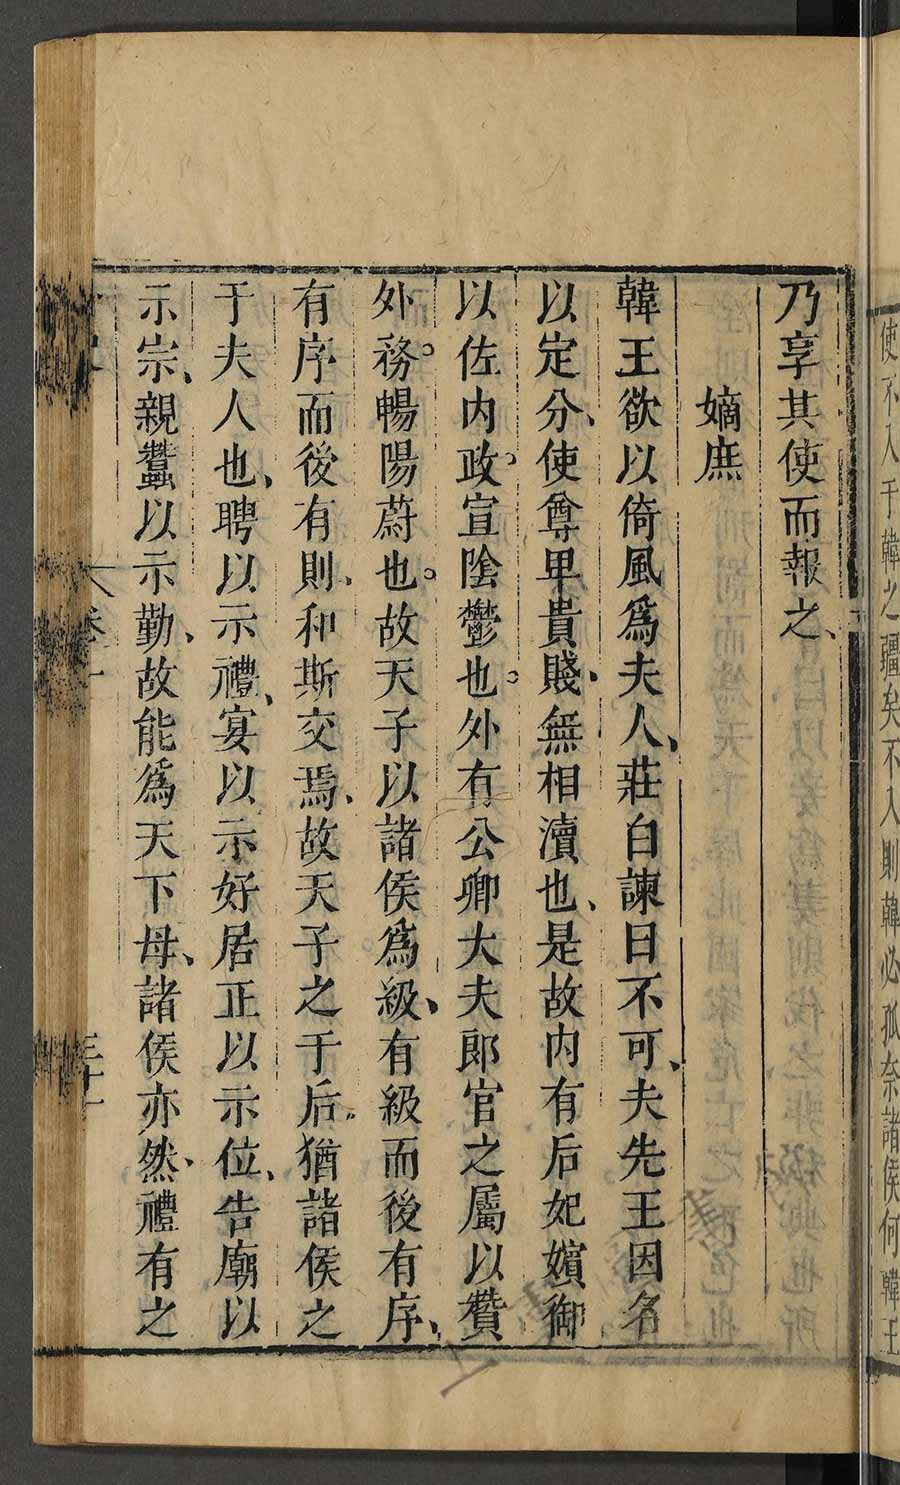 使不入于韓之疆矣不入則韓必孤奈諸侯何韓王
乃享其使而報之、
嫡庶
韓王欲以倚風為夫人、莊白諫曰不可、夫先王因名
以定分、使尊卑貴賤、無相瀆也、是故内有后妃嬪御
以佐内政、宣陰鬱也。外有公卿大夫郎官之屬以贊
外務。暢陽蔚也。故天子以諸侯爲級、有級而後有序、
有序而後有則、和斯交焉、故天子之于后。猶諸侯之
于夫人也、聘以示禮、宴以示好居正以示位、告廟以
示宗、親蠶以示勤、故能爲天下母、諸侯亦然、禮有之